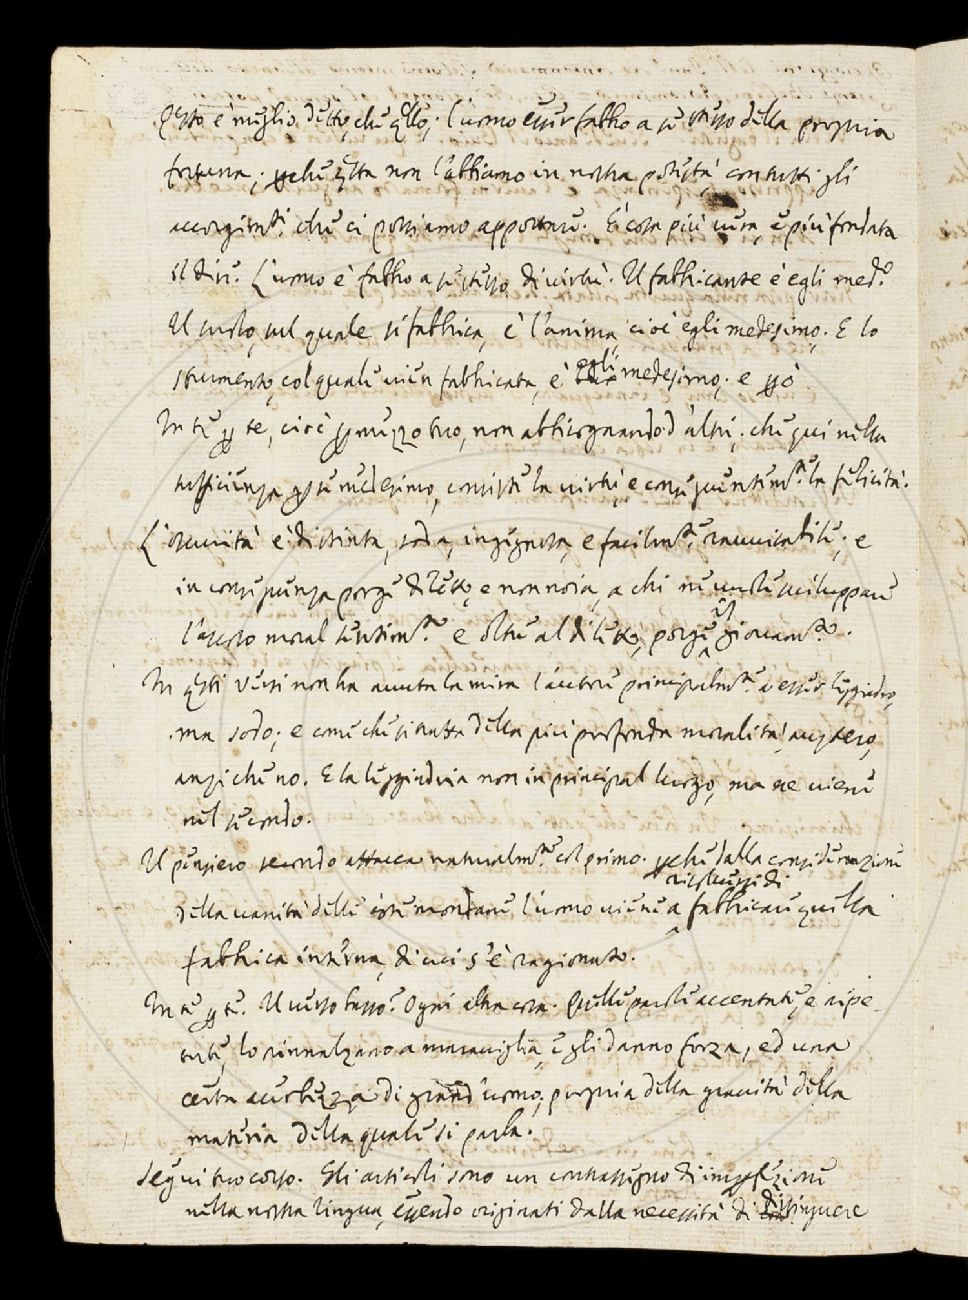 Qsto è meglio detto, che qllo; l'uomo esser fabbro a se stesso della propria
fortuna; pche qsta non l'abbiamo in nostra potestà, con tutti gli
accorgimti, che ci possiamo apportare. È cosa più vera, e più fondata
il dire. L'uomo è fabbro a se stesso di virtù. Il fabbricante è egli medo.
Il suolo, sul quale si fabbrica, è l'anima, cioè egli medesimo; E lo
strumento, col quale vien fabbricata, è egli medesimo; e pciò
In te p te, cioè p mezzo tuo, non abbisognando d'altri; che qui nella
sufficienza p se medesimo, consiste la virtù, e conseguentemte la felicità.
L'oscurità è distinta, soda, ingegnosa, e facilmte ravvisabile; e
in conseguenza porge diletto, e non noia, a chi ne vuole sviluppare
l'ascoso moral sentimto e oltre al diletto, porge giovamto.
In qsti versi non ha avuta la mira l'autore principalmte a esser leggiadro,
ma sodo; e come che si tratta della più profonda moralità, austero,
anzi che no. E la leggiadria non in principal luogo, ma ne viene
nel secondo.
Il pensiero secondo attacca naturalmte col primo. pche dalla considerazione
della vanità delle cose mondane l'uomo viene a
fabbricare quella
fabbrica interna, di cui s'è ragionato.
In te p te. Il verso basso. Ogni altra cosa. Quelle parole accentate, e ripe-
tute, lo rinnalzano a maraviglia, e gli danno forza, ed una
certa acerbezza di grand'uomo, propria della gravità della
materia della quale si parla.
Segui tuo corso. Gli articoli sono un contrassegno di impfezione
nella nostra lingua, essendo originati dalla necessità di distinguere